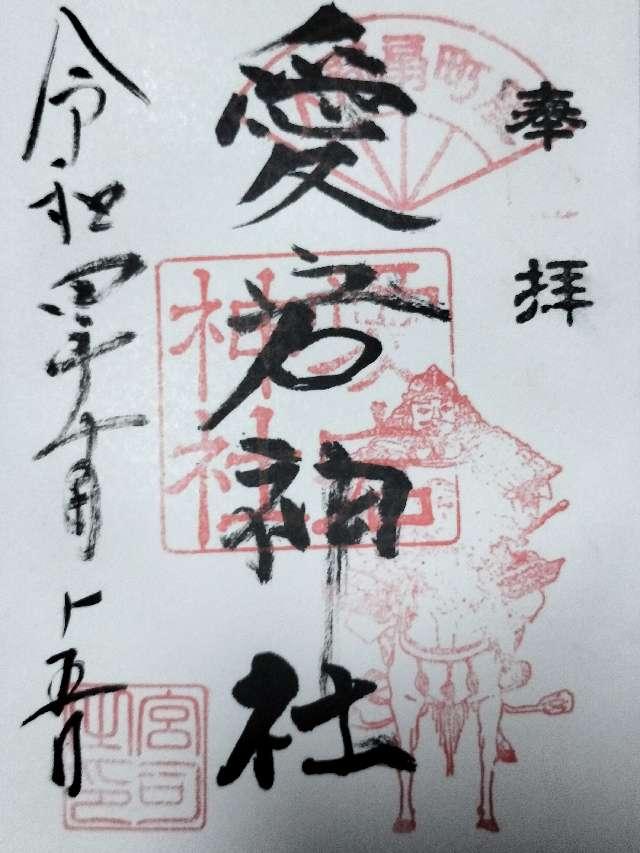 奉拝
扇町屋
愛宕神社
愛宕神社
令和四年十月十五日
宮司之印